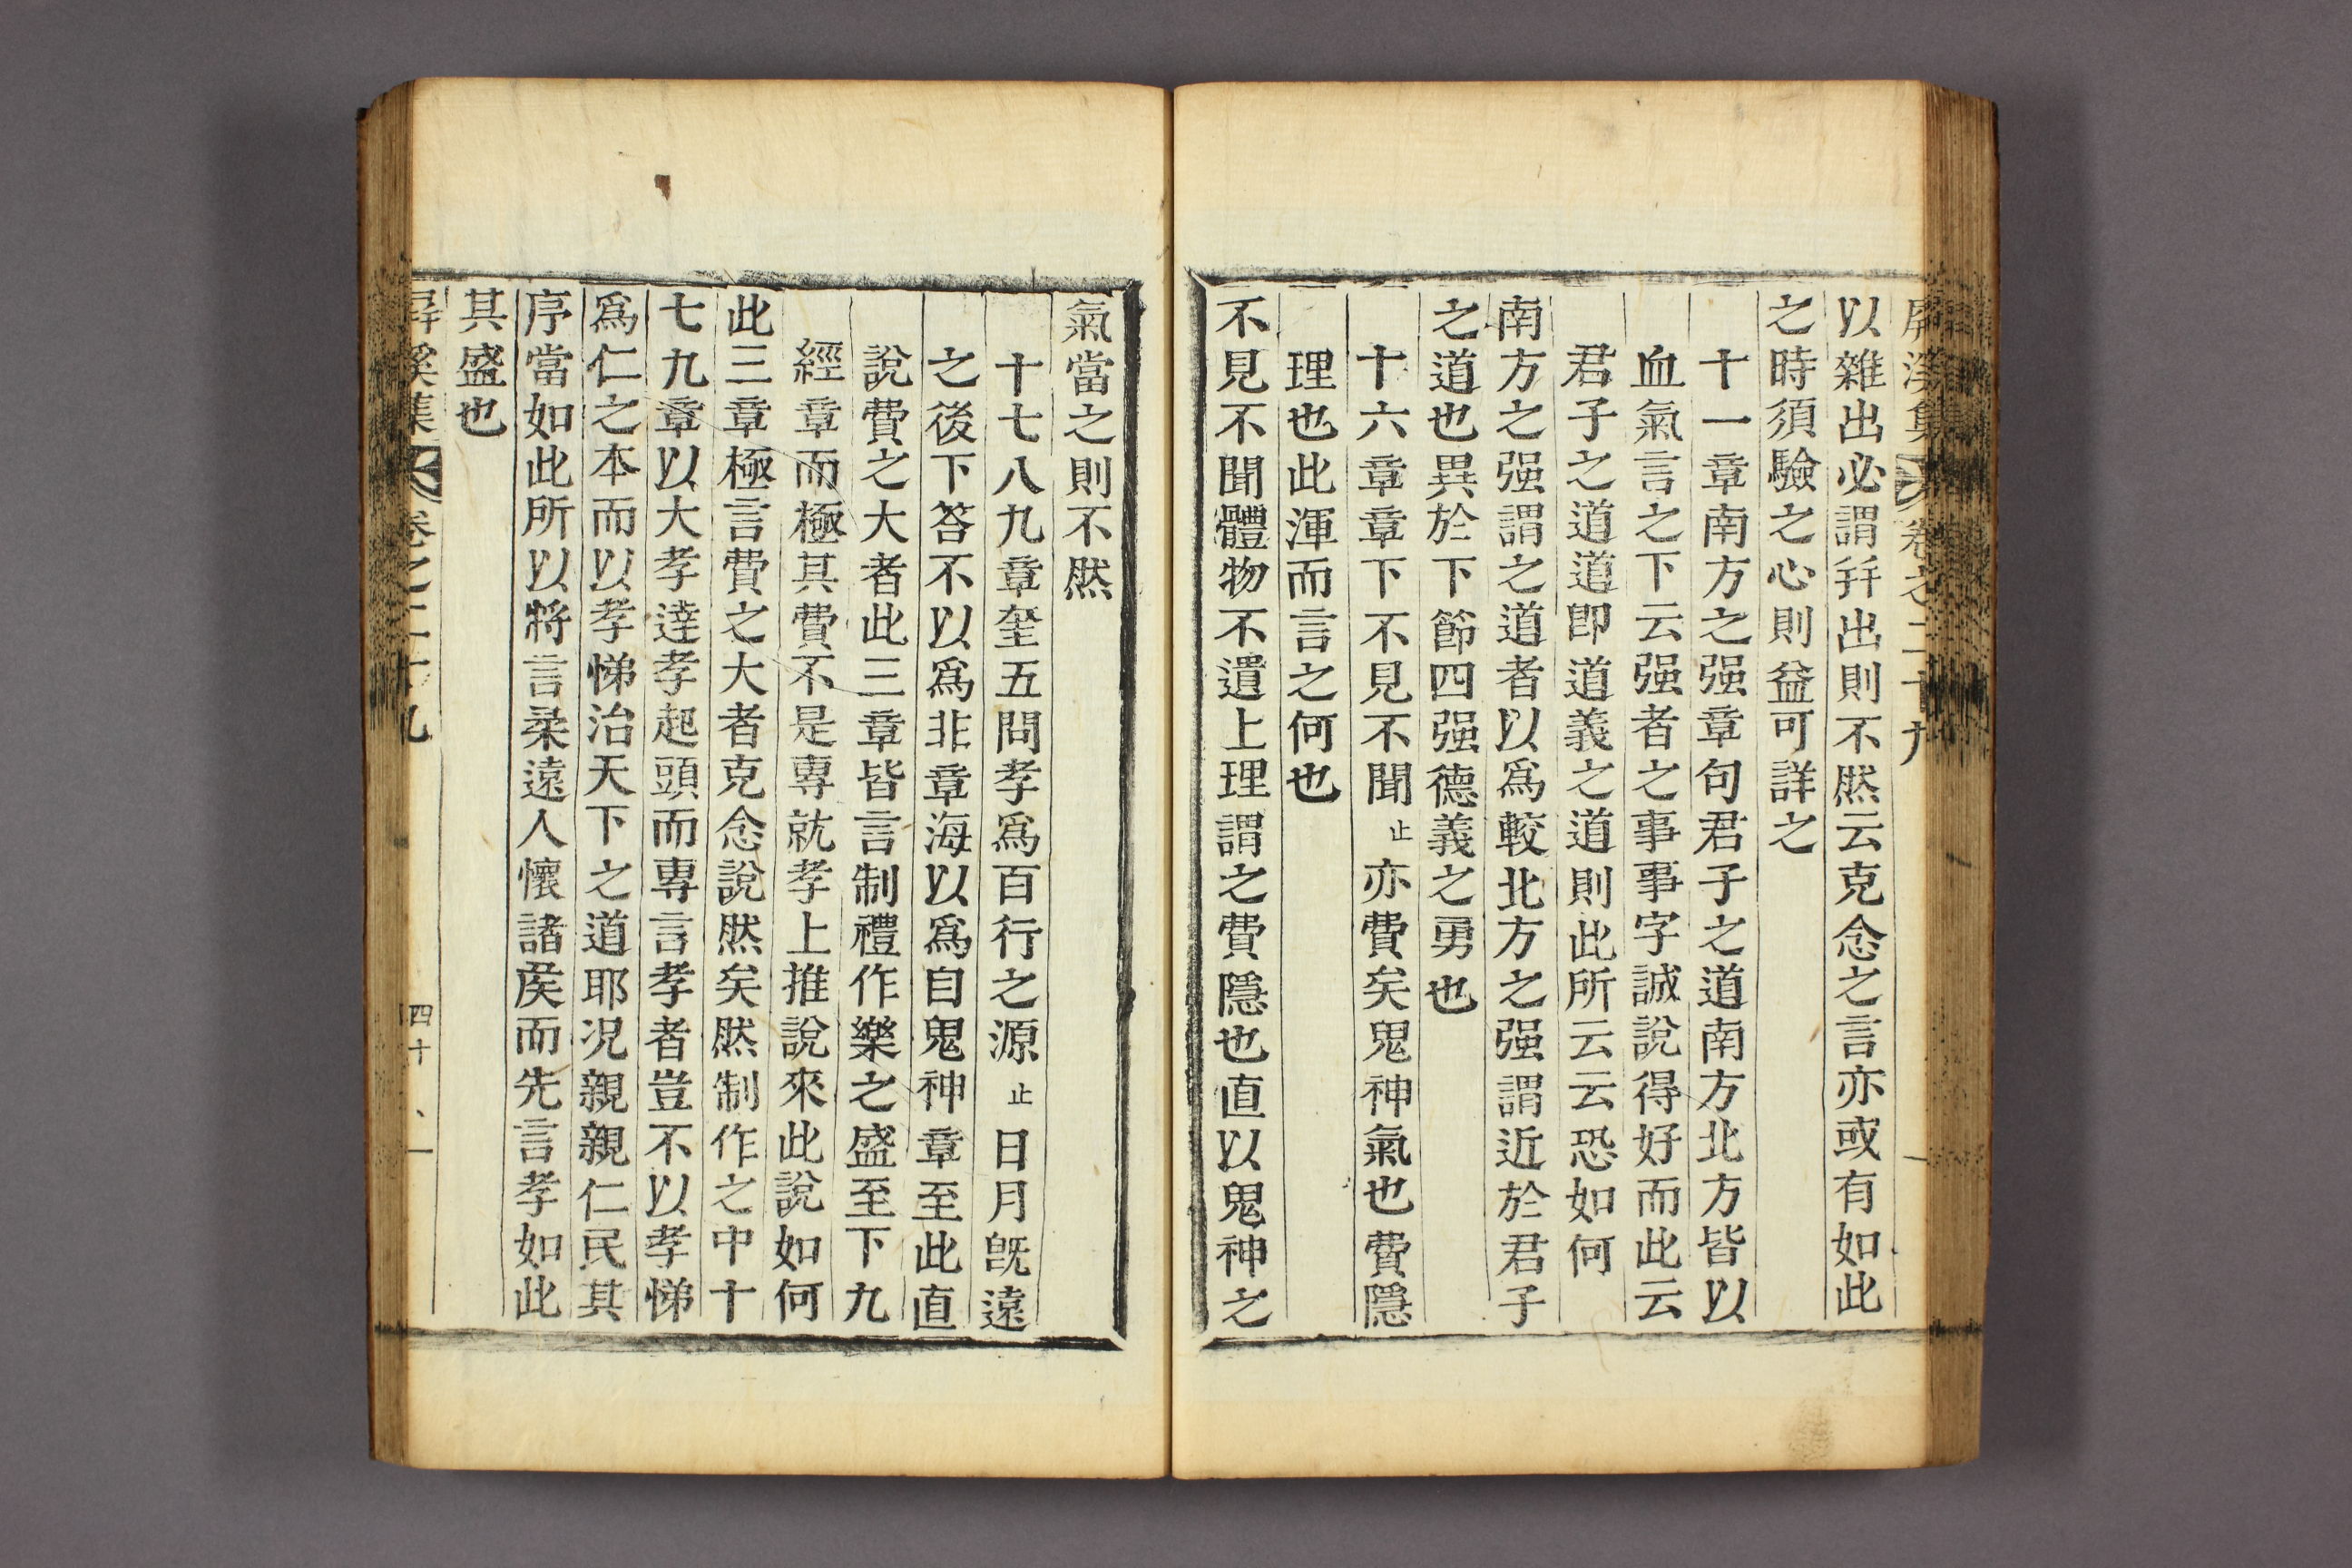 屛溪集 卷之二十九
以雜出必謂幷出則不然云克念之言亦或有如此
之時須驗之心則益可詳之
十一章南方之强章句君子之道南方北方皆以
血氣言之下云强者之事事字誠說得好而此云
君子之道道卽道義之道則此所云云恐如何
南方之强謂之道者以爲較北方之强謂近於君子
之道也異於下節四强德義之勇也
十六章章下不見不聞止亦費矣鬼神氣也費隱
理也此渾而言之何也
不見不聞體物不遺上理謂之費隱也直以鬼神之
氣當之則不然
十七八九章奎五問孝爲百行之源止日月旣遠
之後下答不以爲非章海以爲自鬼神章至此直
說費之大者此三章皆言制禮作樂之盛至下九
經章而極其費不是專就孝上推說來此說如何
此三章極言費之大者克念說然矣然制作之中十
七九章以大孝達孝起頭而專言孝者豈不以孝悌
爲仁之本而以孝悌治天下之道耶况親親仁民其
序當如此所以將言柔遠人懷諸侯而先言孝如此
其盛也
屛溪集 卷之二十九 四十一